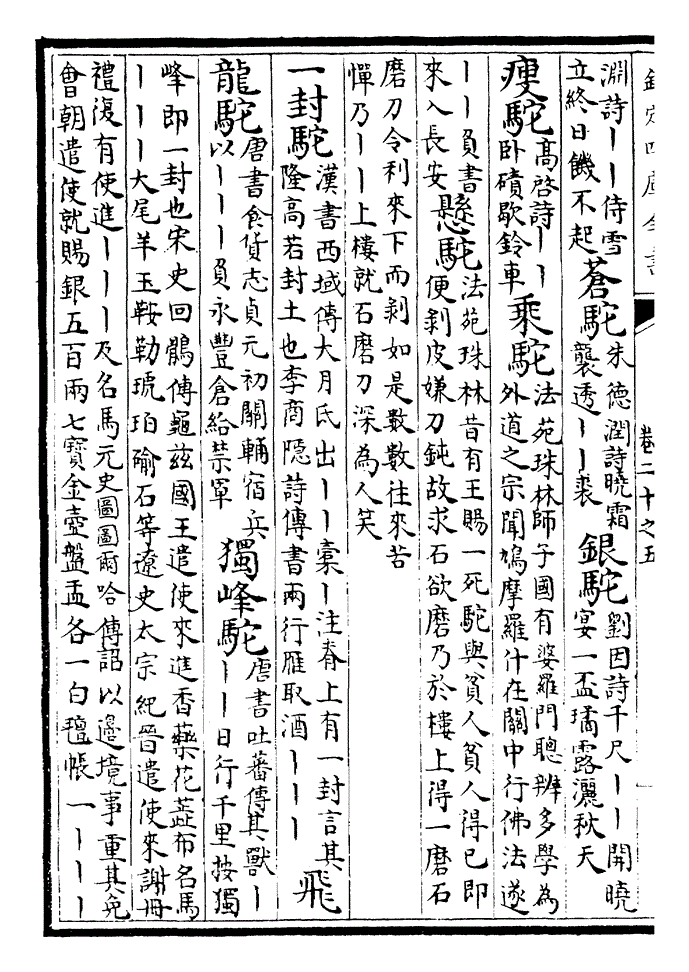 欽定四庫全書 卷二十之五
淵詩丨丨侍雪
立終日饑不起
蒼駝
朱德潤詩曉霜
襲透丨丨裘
銀駝
劉因詩千尺丨丨開曉
宴一盃璚露灑秋天
瘦駝
高啓詩丨丨
卧磧歇鈴車
乘駝
法苑珠林師子國有婆羅門聰辨多學為
外道之宗聞鳩摩羅什在關中行佛法遂
丨丨負書
來入長安
懸駝
法苑珠林昔有王賜一死駝與貧人貧人得已即
便剥皮嫌刀鈍故求石欲磨乃於樓上得一磨石
磨刀令利來下而剥如是數數往來苦
憚乃丨丨上樓就石磨刀深為人笑
一封駝
漢書西域傳大月氏出丨丨橐丨注脊上有一封言其
隆高若封土也李商隱詩傳書兩行雁取酒丨丨丨
飛
龍駝
唐書食貨志貞元初關輔宿兵
以丨丨丨負永豐倉給禁軍
獨峰駝
唐書吐蕃傳其獸丨
丨丨日行千里按獨
峰即一封也宋史回鶻傳龜兹國王遣使來進香藥花蕋布名馬
丨丨丨大尾羊玉鞍勒琥珀瑜石等遼史太宗紀晉遣使來謝冊
禮復有使進丨丨丨及名馬元史圖圖爾哈傳詔以邊境事重其免
會朝遣使就賜銀五百兩七寶金壺盤盂各一白氊帳一丨丨丨